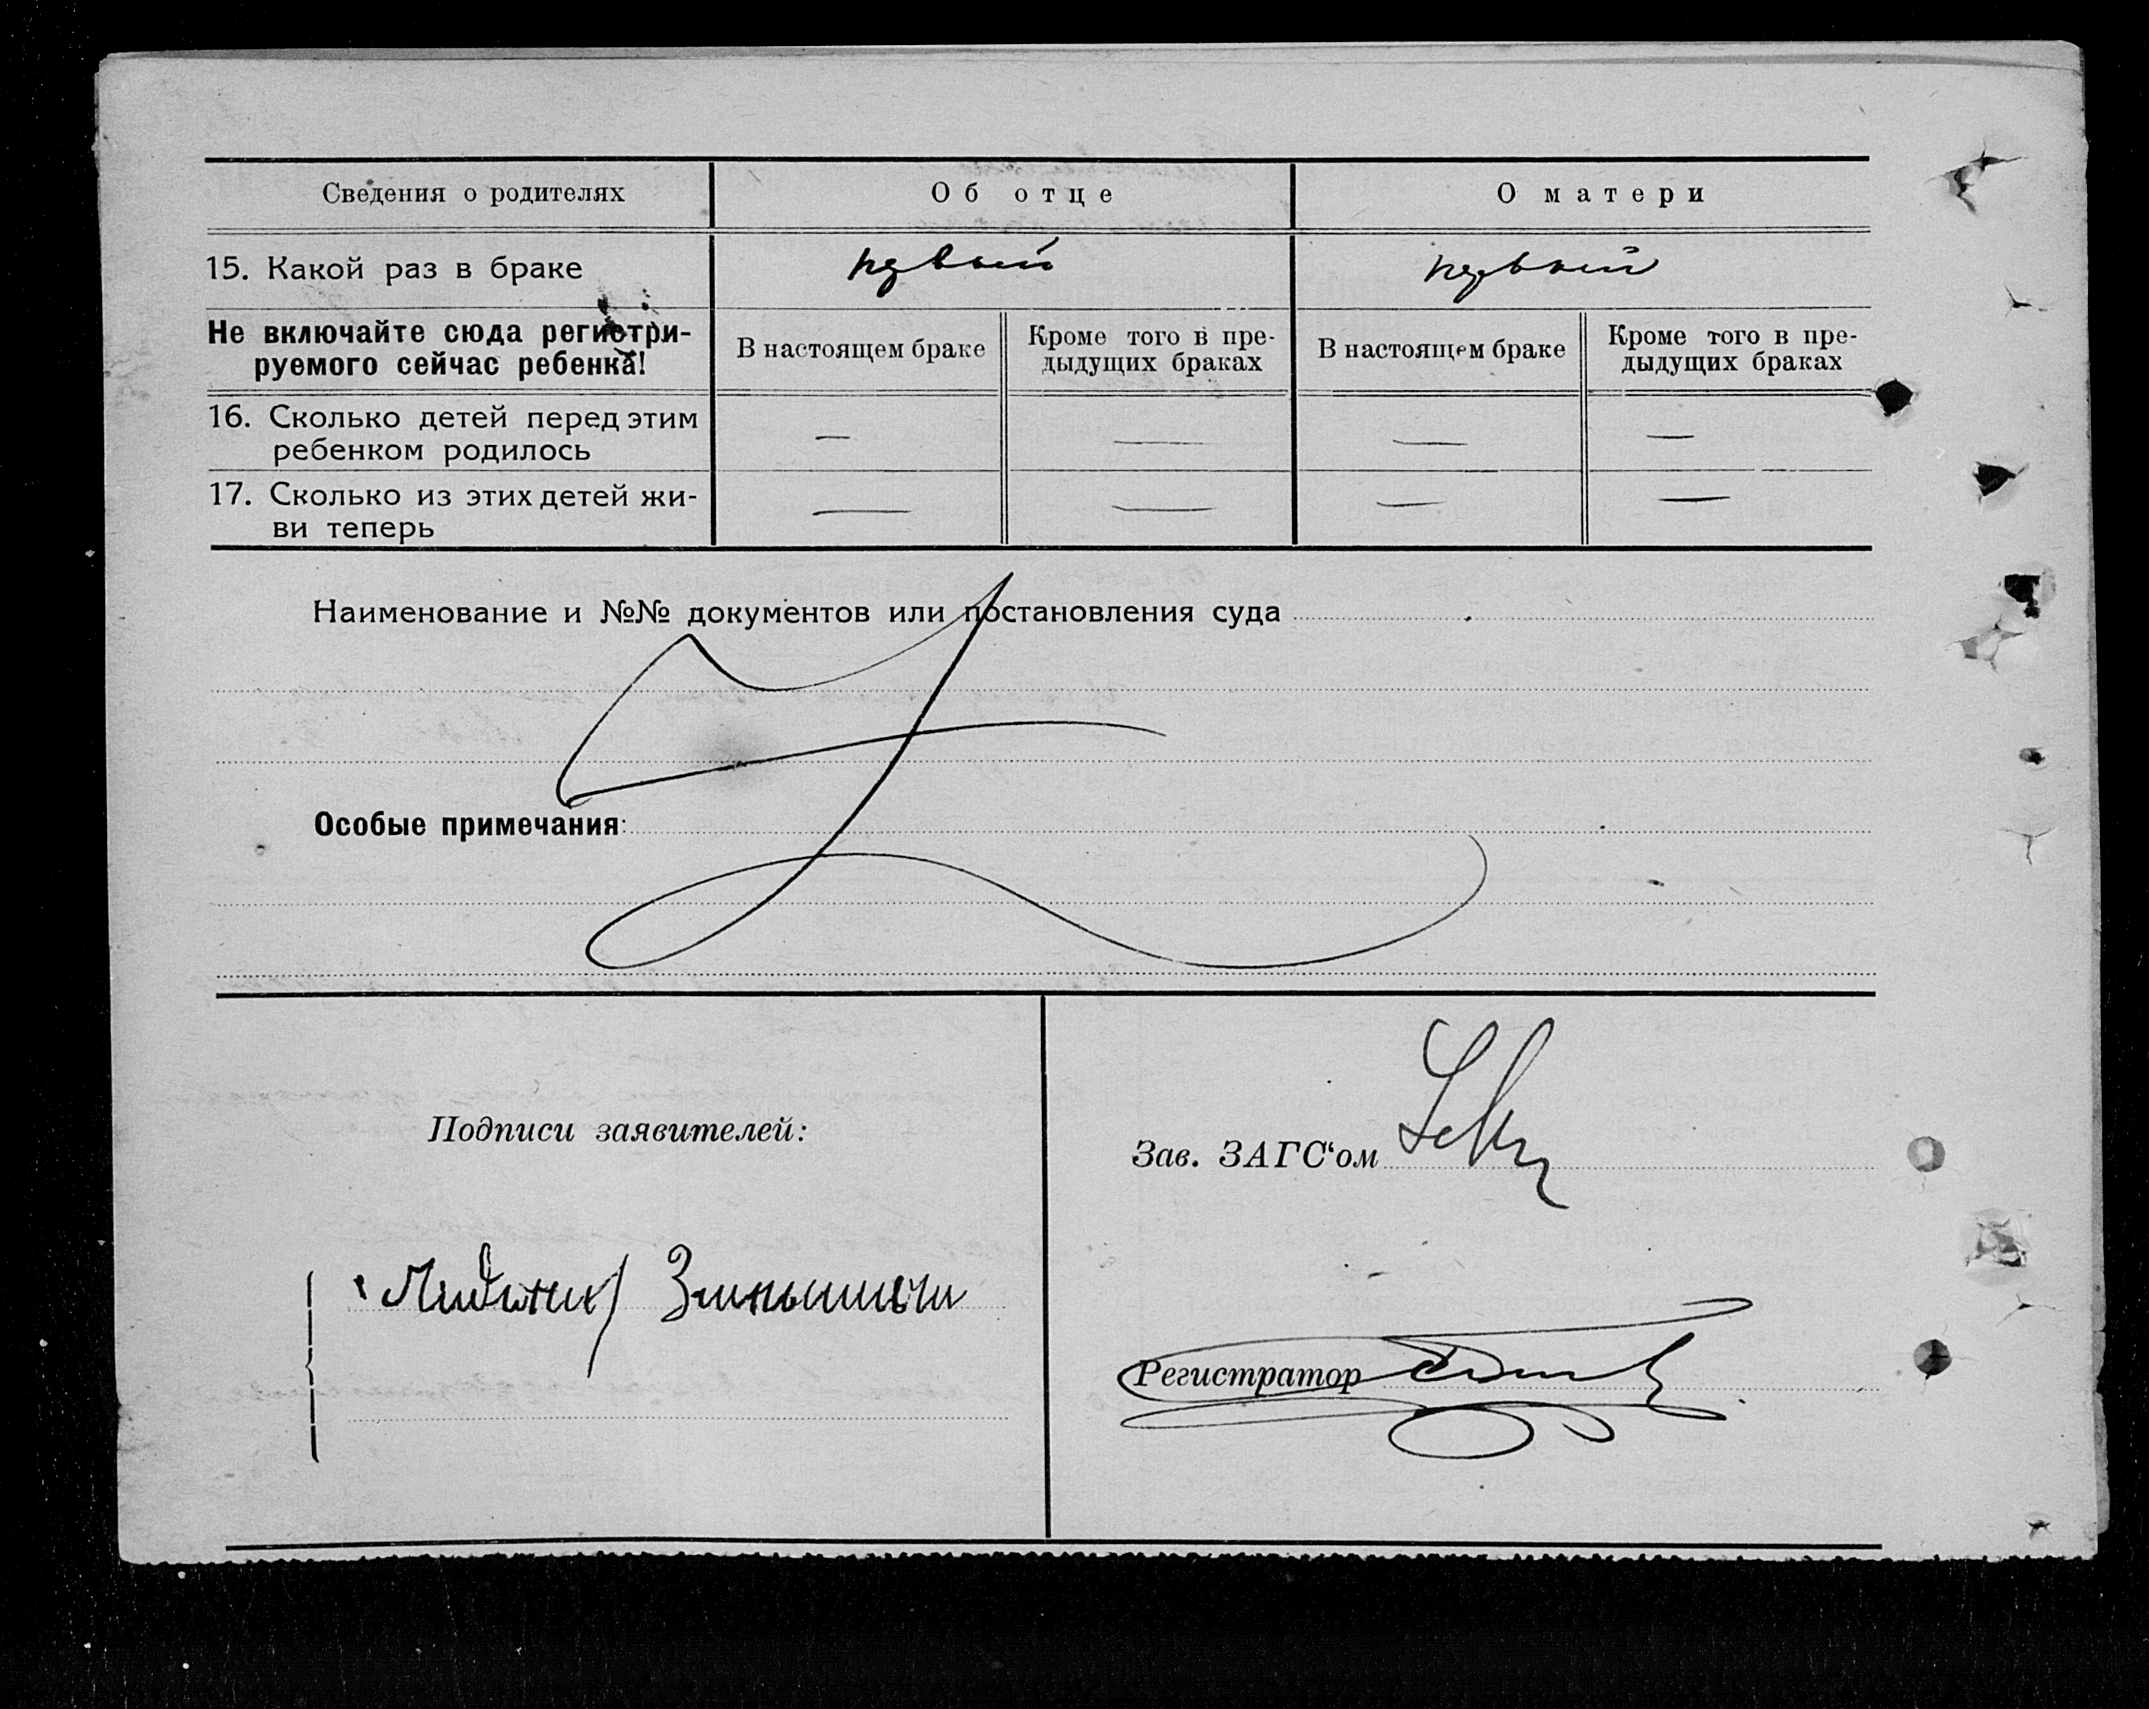 Сведения о родителях
Об отце
О матери
15. Какой раз в браке
первый
первый
Не включайте сюда регистри-
руемого сейчас ребенка!
В настоящем браке
Кроме того в пре-
дыдущих браках
В настоящем браке
Кроме того в пре-
дыдущих браках
16. Сколько детей перед этим
ребенком родилось
— — — —
17. Сколько из этих детей жи-
ви теперь
— — — —
Наименование и №№ документов или постановления суда
Особые примечания:
Подписи заявителей:
Зав. ЗАГС‘ом
Регистратор